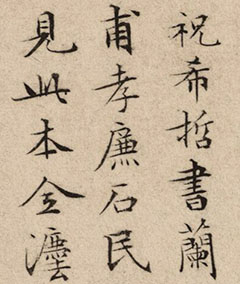 祝希哲書蘭
甫孝廉石民
見此本全灋